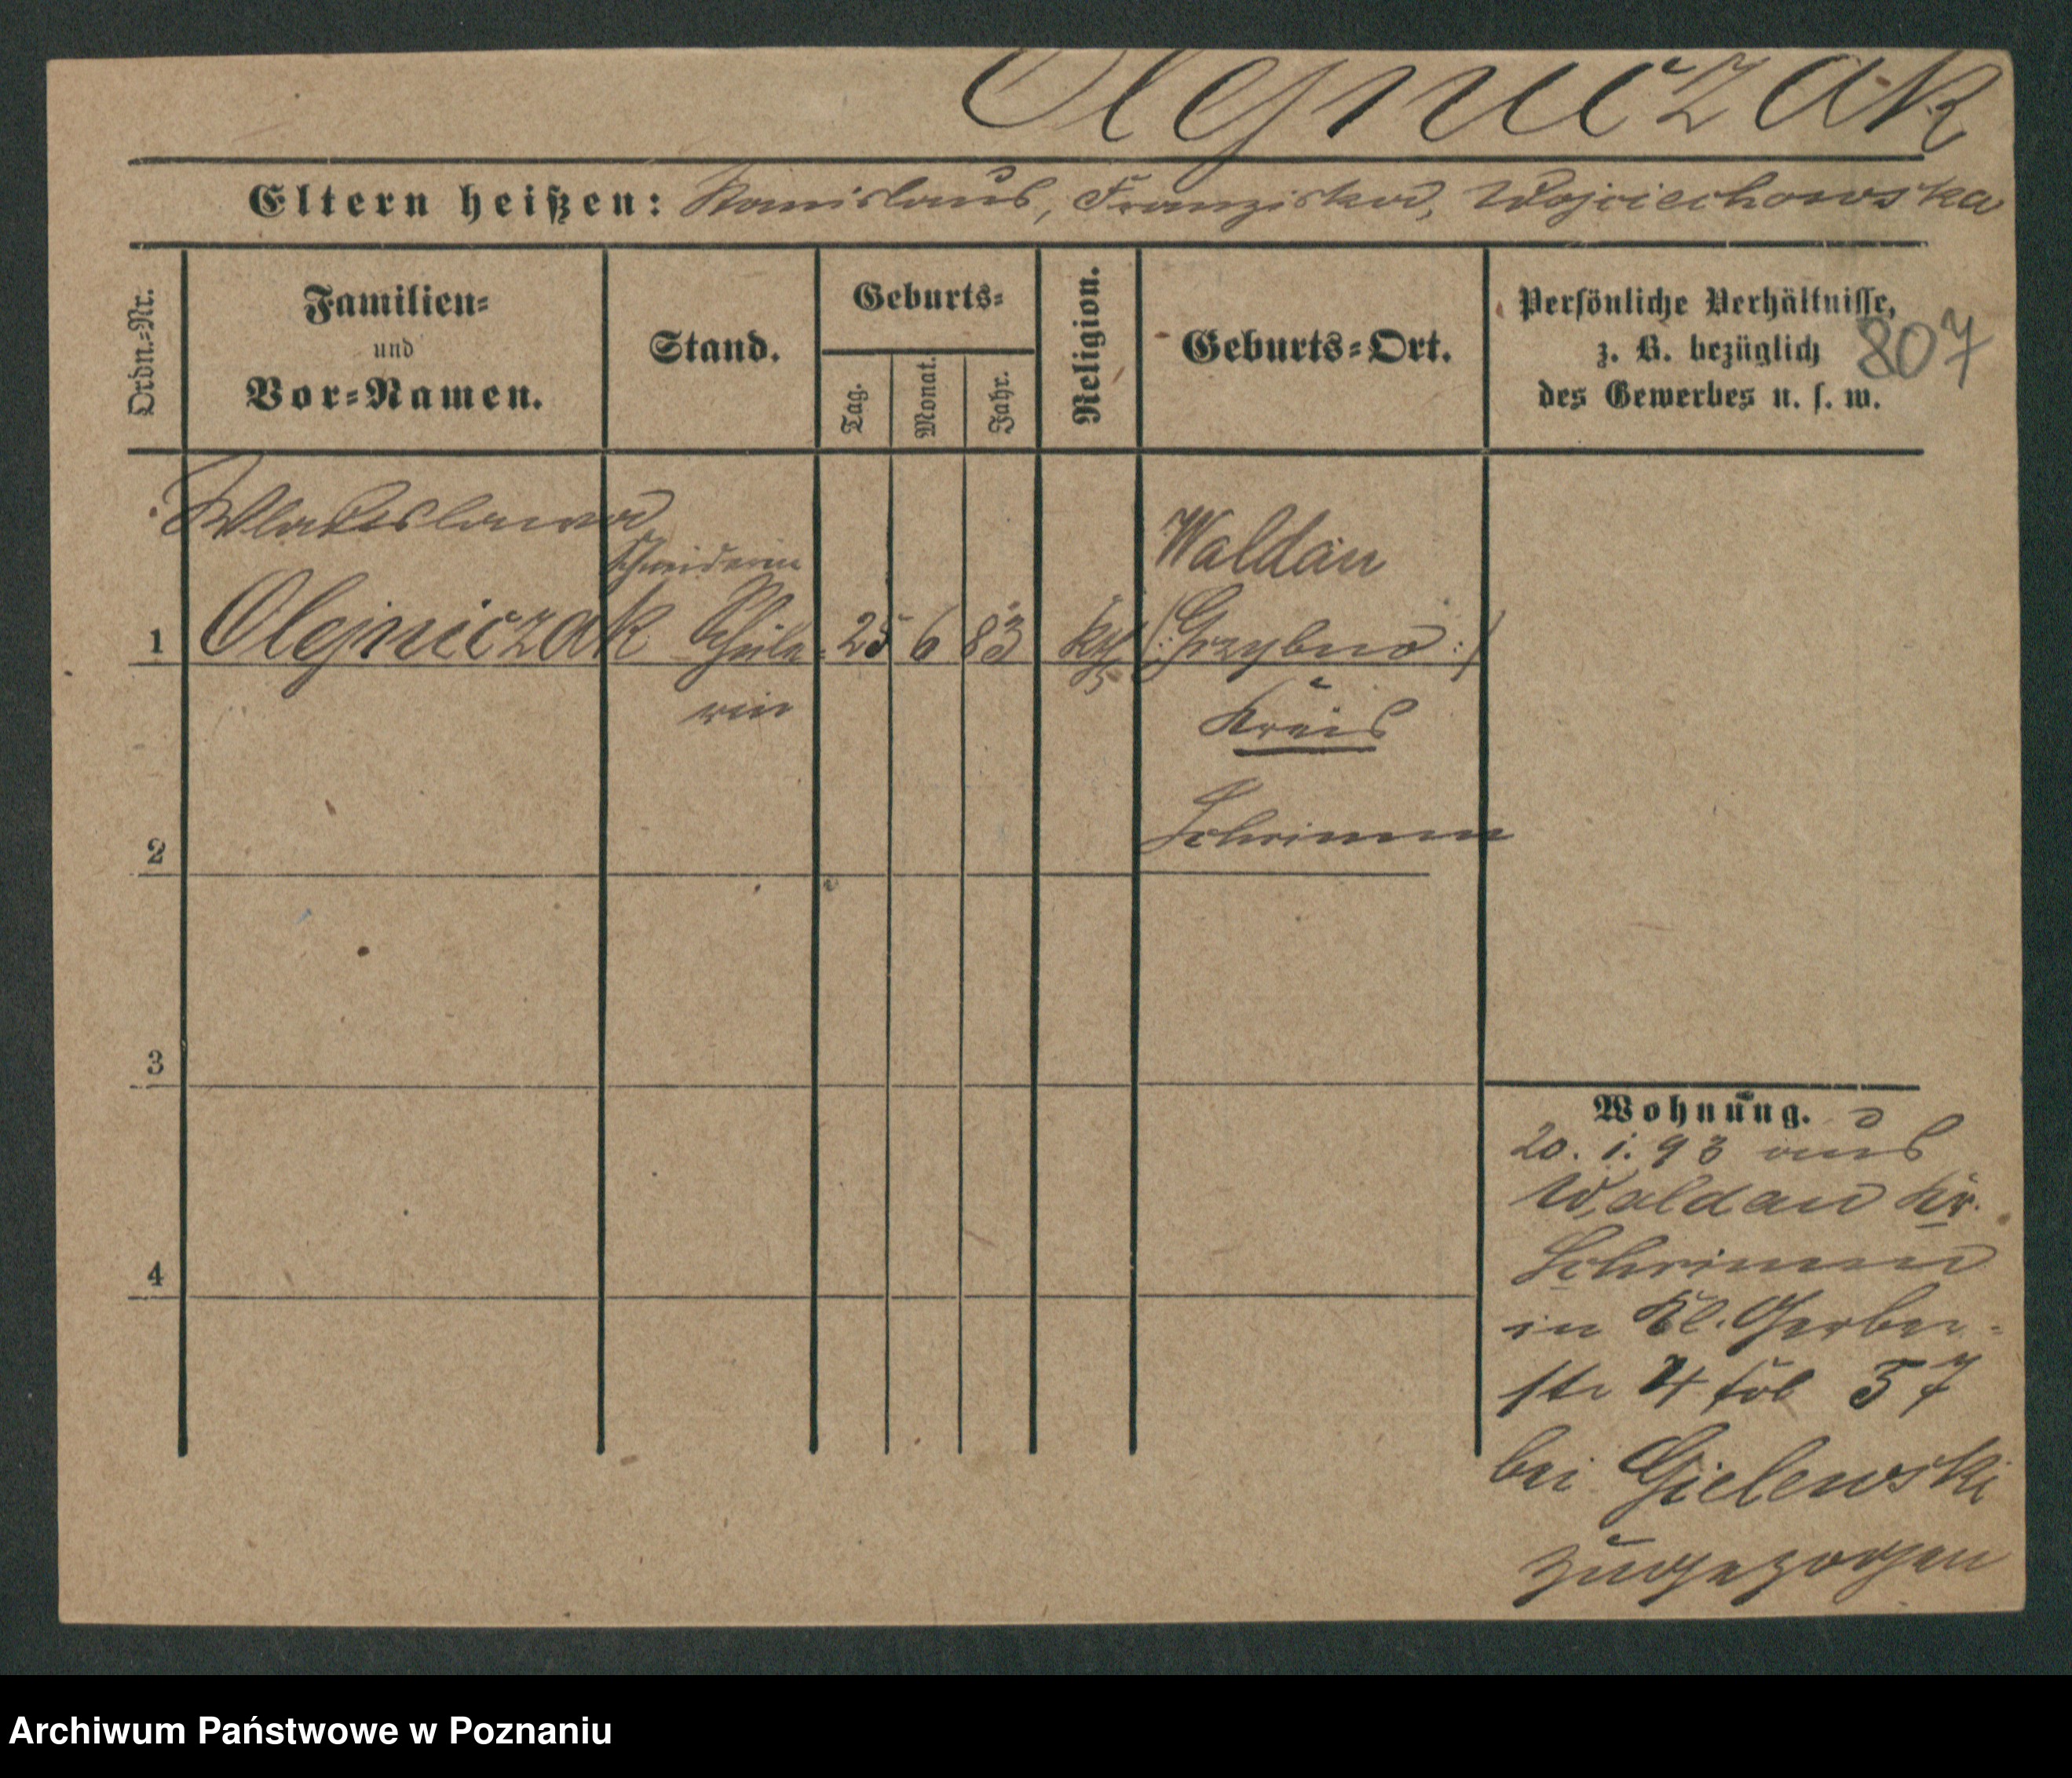 Olejniczak
Eltern heißen: Stanislaus, Franziska, Wojciechowska
Ordn.=Nr.
Familien=
und
Vor=Namen.
Stand.
Geburts=
Tag.
Monat.
Jahr.
Religion.
Geburts=Ort.
Persönliche Verhältnisse,
z. B. bezüglich
des Gewerbes u. s. w.
807
Wladislawa
Schneiderin
Waldau
1 Olejniczak Schüle= 25 6 83 kth (:Grzybno:)
rin
Kreis
Schrimm
2
3
4
Wohnung.
20. 1. 93 aus
Waldau Kr.
Schrimm
in Kl. Gerber=
str 4 fol 57
bei Gielewski
zugezogen
Archiwum Państwowe w Poznaniu